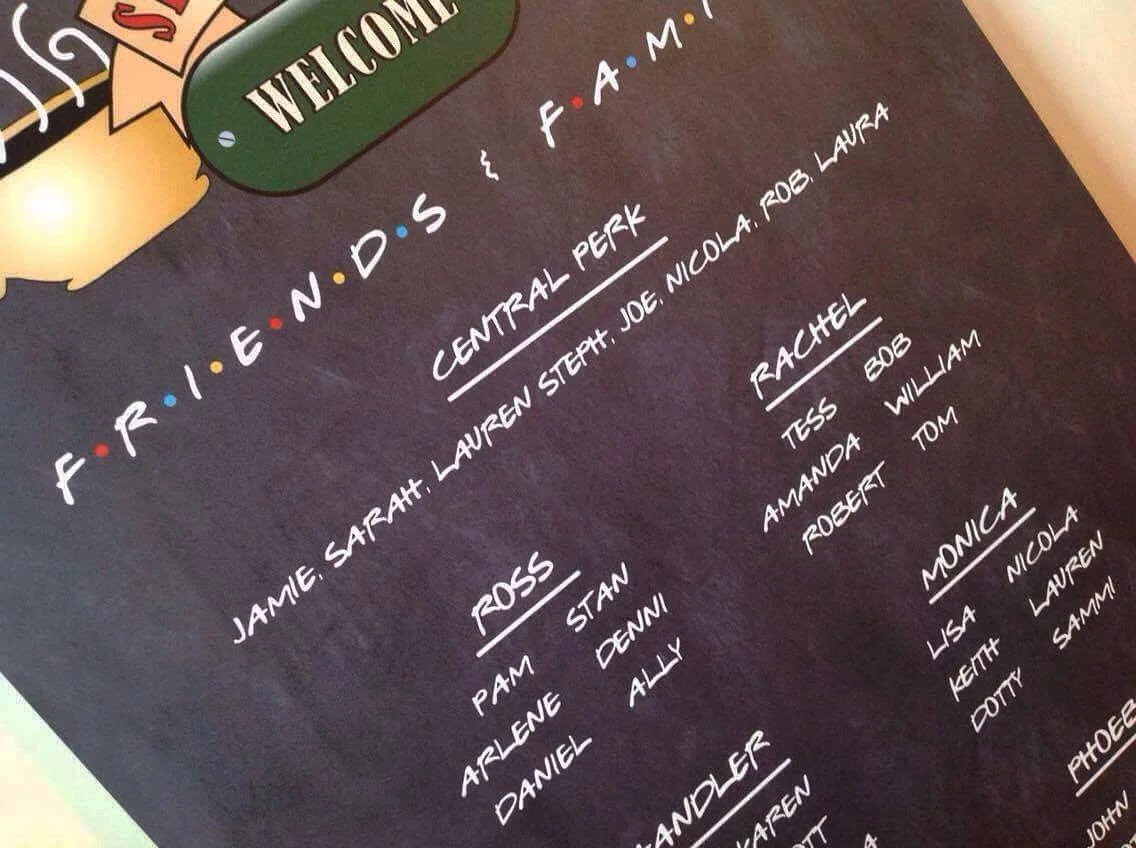 WELCOME
F·R·I·E·N·D·S & F·A·M·
CENTRAL PERK
JAMIE, SARAH, LAUREN STEPH, JOE, NICOLA, ROB, LAURA
ROSS
PAM STAN
ARLENE DENNI
DANIEL ALLY
RACHEL
TESS BOB
AMANDA WILLIAM
ROBERT TOM
MONICA
LISA NICOLA
KEITH LAUREN
DOTTY SAMMI
ANDLER
KAREN
PHOEB
JOHN